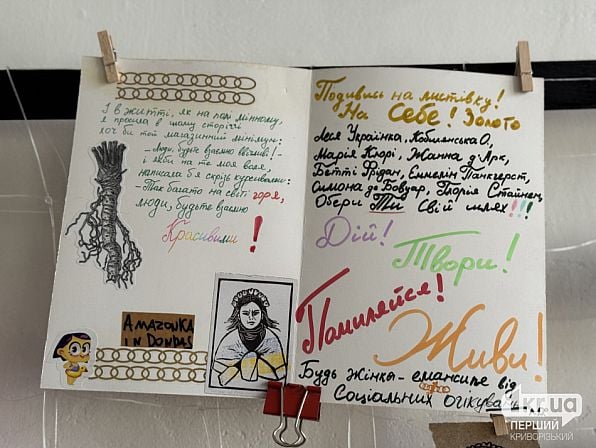 І в житті, як на полі мінному,
я просила в цьому сторіччі
хоч би той магазинний мінімум:
- Люди, будьте взаємно ввічливі! -
і якби на те моя воля,
написала б я скрізь курсивами:
- Так багато на світі горя,
люди, будьте взаємно
Красивими !
AMAZONKA
IN DONBAS
Подивись на листівку!
На Себе! Золото
Леся Українка, Кобилянська О,
Марія Кюрі, Жанна д'Арк,
Бетті Фрідан, Еммелін Панкгерст,
Симона де Бовуар, Глорія Стайнем,
Обери Ти Свій шлях !!!
Дій!
Твори!
Помиляйся!
Живи!
Будь Жінкы - емансипе від
Соціальних очікувань...
1kr.ua
ПЕРШИЙ
КРИВОРІЗЬКИЙ